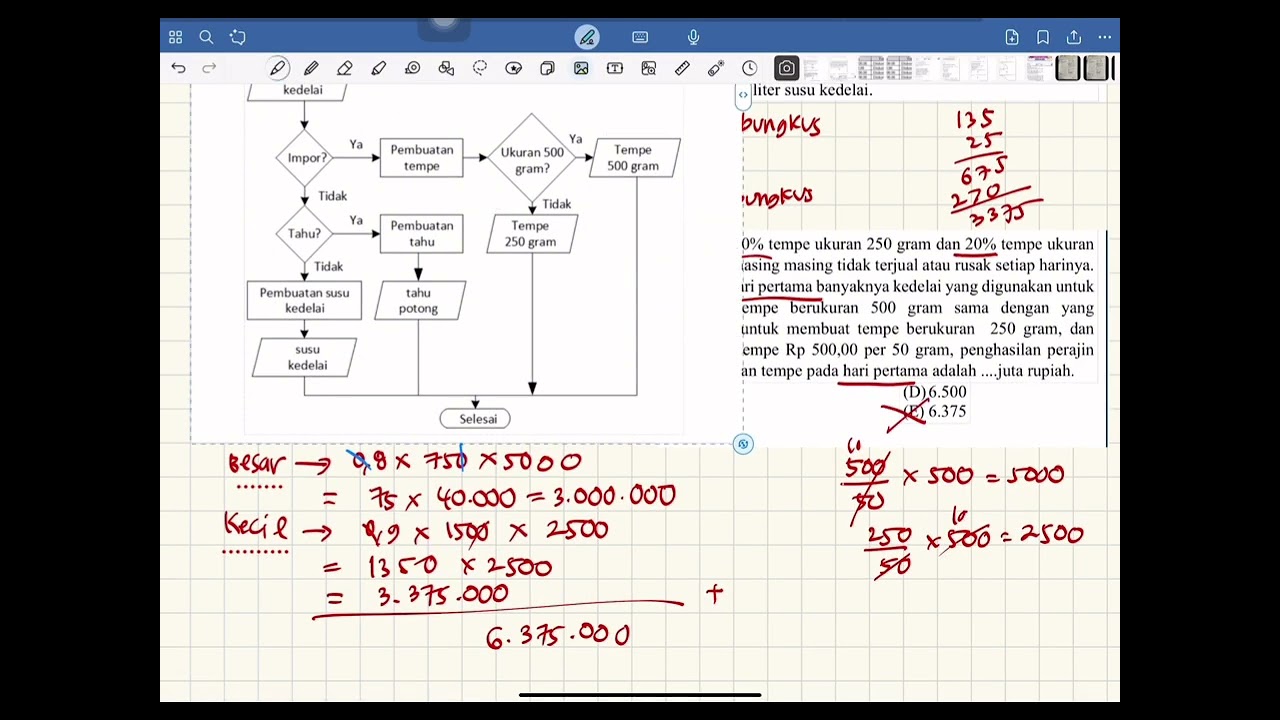 kedelai
Impor?
Ya
Pembuatan
tempe
Ukuran 500
gram?
Ya
Tempe
500 gram
Tidak
Tidak
Tahu?
Ya
Pembuatan
tahu
Tempe
250 gram
Tidak
Pembuatan susu
kedelai
tahu
potong
susu
kedelai
Selesai
liter susu kedelai.
bungkus
135
25
675
270
3375
ungkus
0% tempe ukuran 250 gram dan 20% tempe ukuran
asing masing tidak terjual atau rusak setiap harinya.
ri pertama banyaknya kedelai yang digunakan untuk
empe berukuran 500 gram sama dengan yang
untuk membuat tempe berukuran 250 gram, dan
empe Rp 500,00 per 50 gram, penghasilan perajin
an tempe pada hari pertama adalah ....juta rupiah.
(D) 6.500
(E) 6.375
Besar → 0,8 × 750 × 5000
= 75 × 40.000 = 3.000.000
Kecil → 0,9 × 1500 × 2500
= 1350 × 2500
= 3.375.000 +
6.375.000
10
500/50 × 500 = 5000
10
250/50 × 500 = 2500